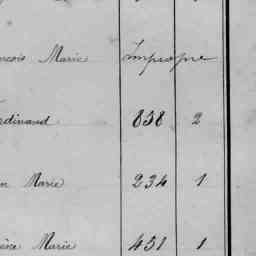 ncois Marie Impropre
rdinand 838 2
n Marie 234 1
ène Marie 451 1